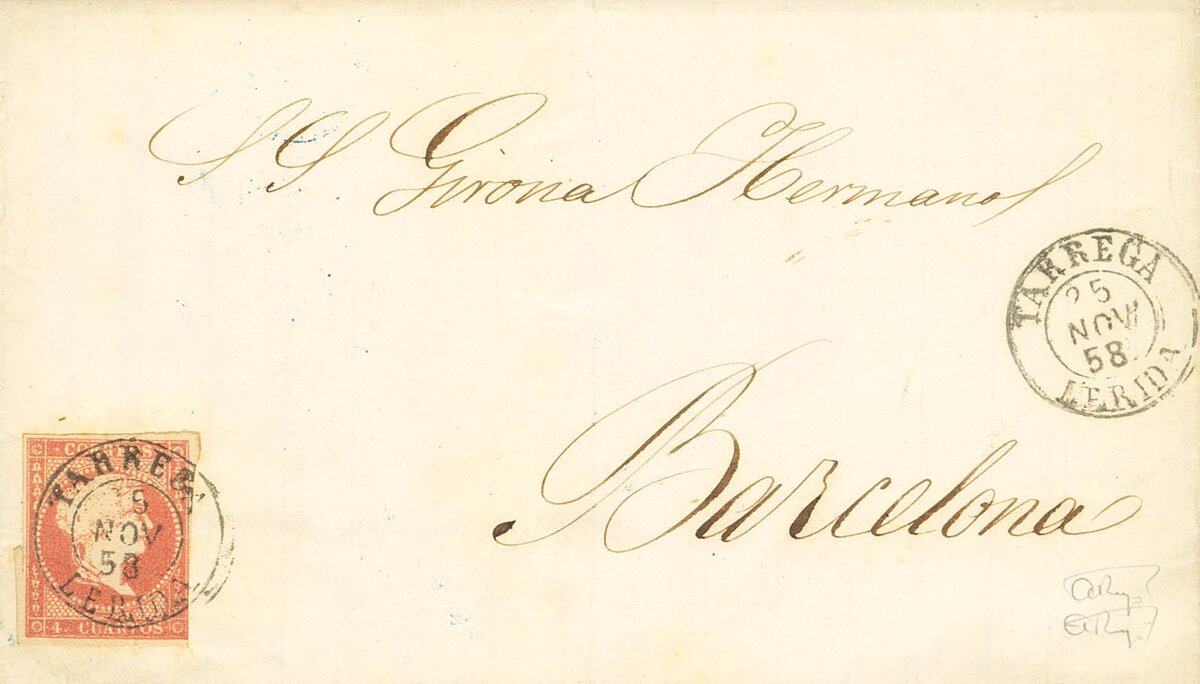 S S Girona Hermanos
TARREGA
25
NOV
58
LERIDA
Barcelona
CORREOS
TARREGA
25
NOV
58
LERIDA
4. CUARTOS